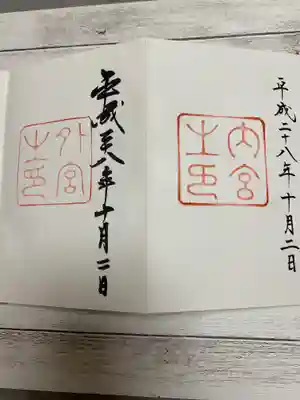 平成二十八年十月二日
内宮
之印
平成廿八年十月二日
外宮
之印